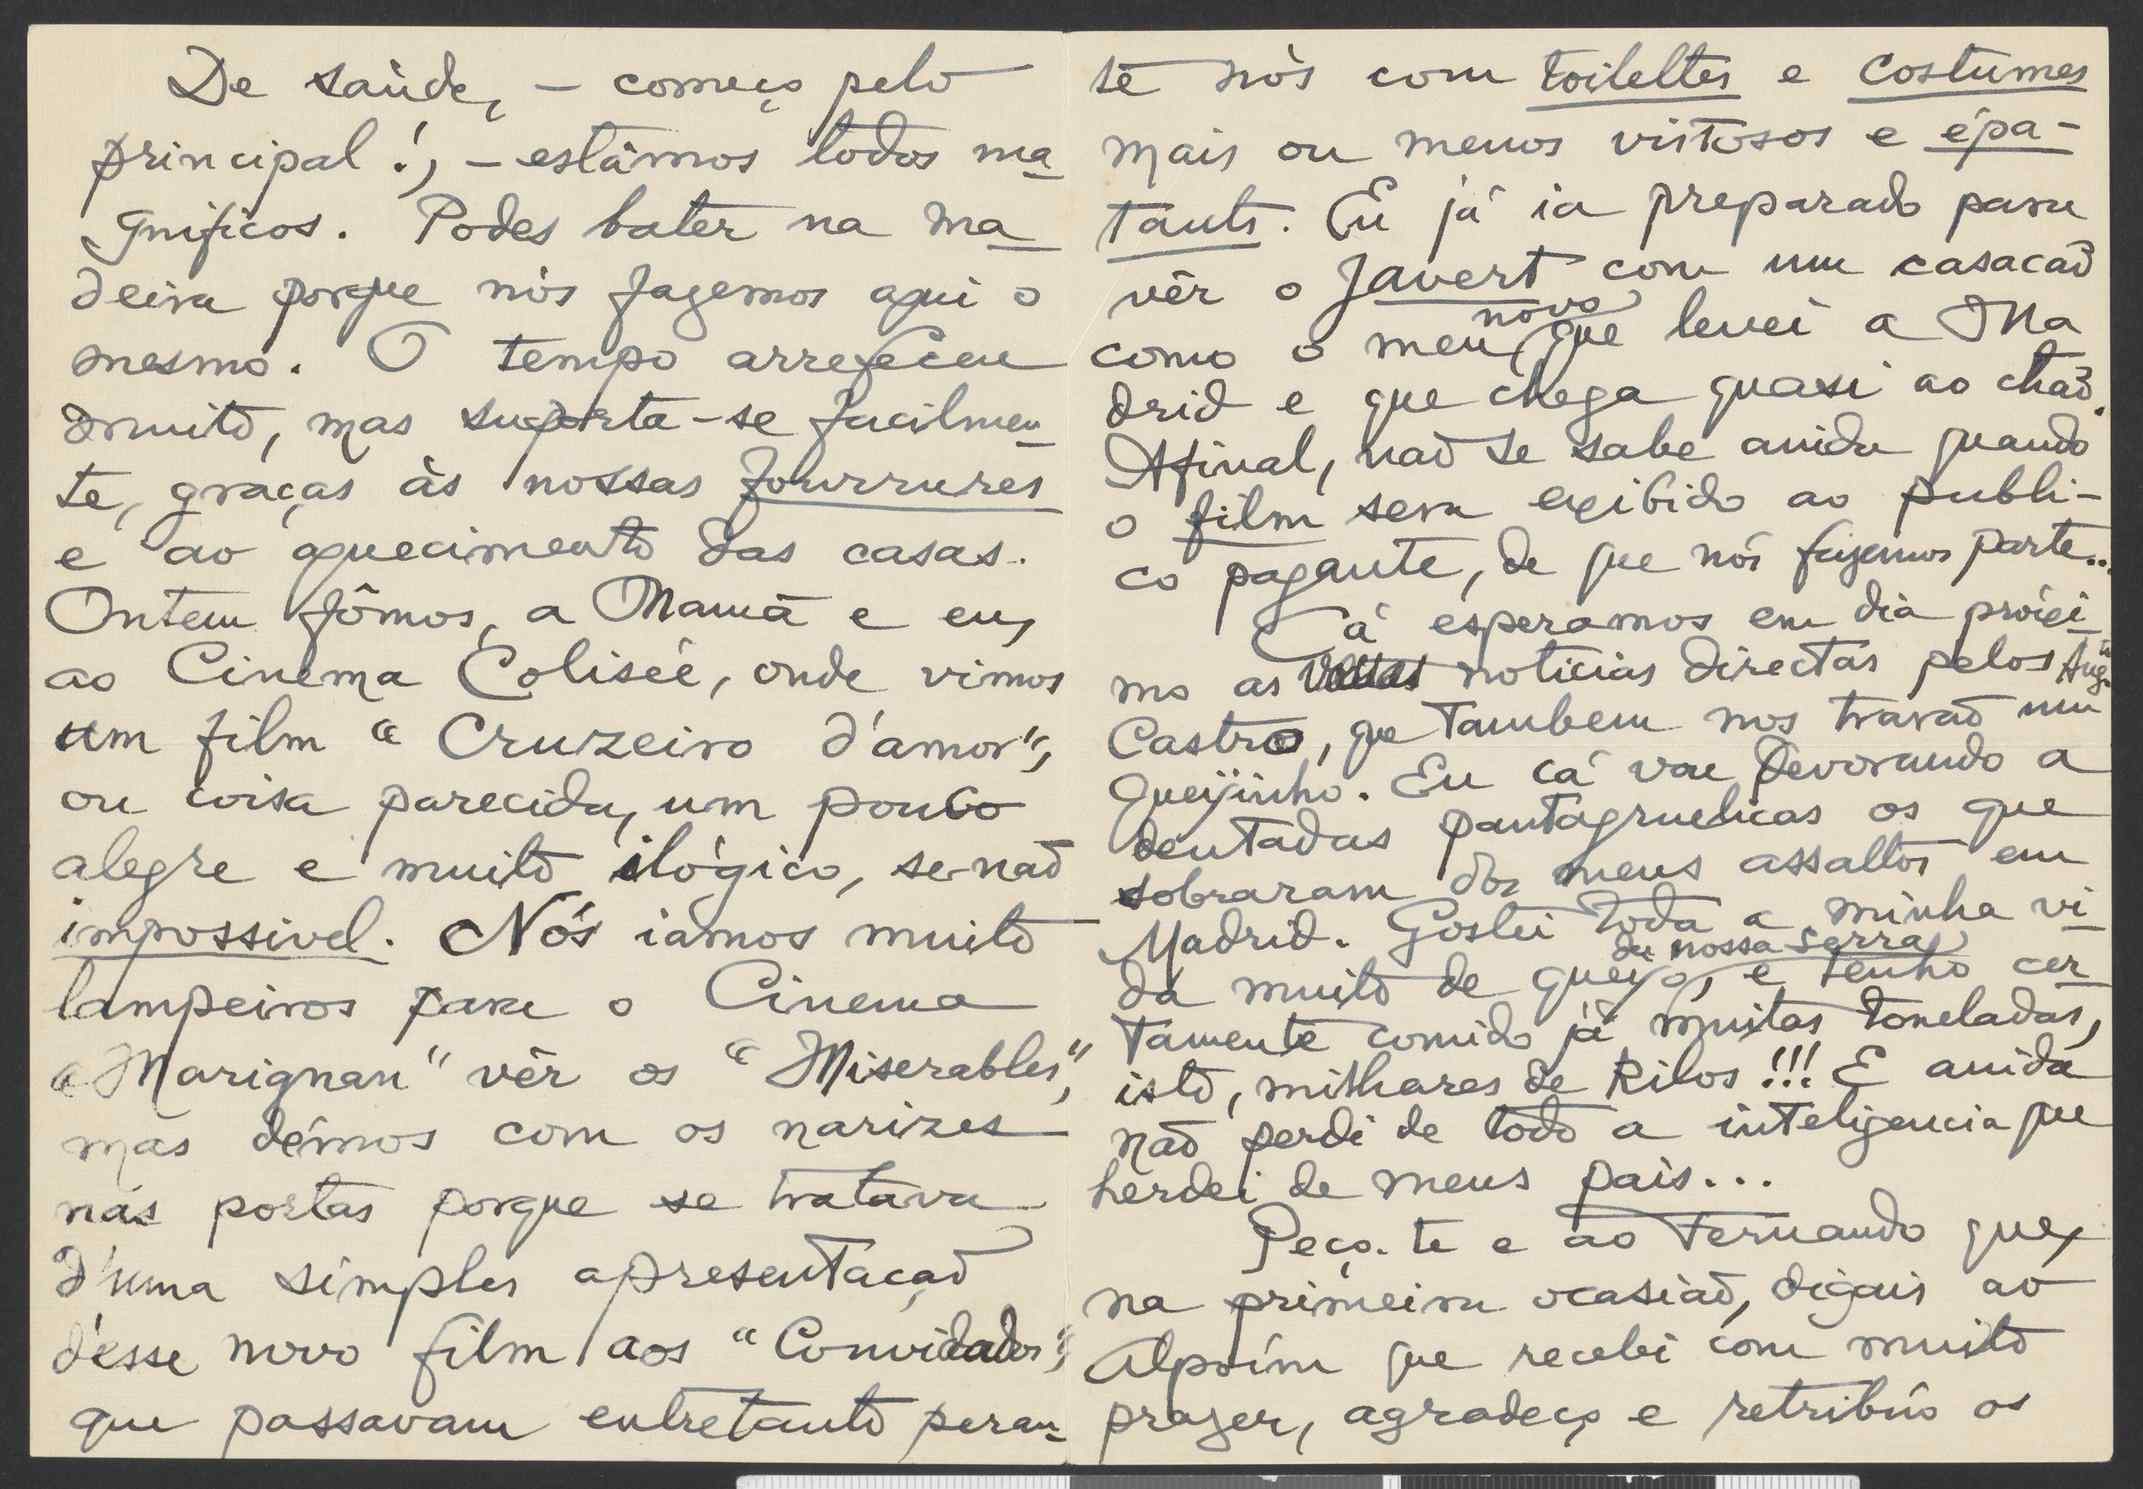 De saùde, – começo pelo
principal!, – estâmos todos ma-
gnificos. Podes bater na ma-
deira porque nós fazemos aqui o
mesmo. O tempo arrefeceu
muito, mas suporta-se facilmen-
te, graças às nossas fourrures
e ao aquecimento das casas.
Ontem fômos, a Mamã e eu,
ao Cinema Coliseé, onde vimos
um film "Cruzeiro d'amor",
ou coisa parecida, um pouco
alegre e muito ilógico, se-não
impossivel. Nós iamos muito
lampeiros para o Cinema
"Marignan" vêr os "Miserables",
mas démos com os narizes
nas portas porque se tratava
d'uma simples apresentação
d'esse novo film aos "Convidados",
que passavam entretanto peran-
te nós com toilettes e costumes
mais ou menos vistosos e épa-
tants. Eu já ia preparado para
vêr o Javert com um casacão
como o meu novo, que levei a Ma
drid e que chega quasi ao chão.
Afinal, não se sabe ainda quando
o film sera exibido ao publi-
co pagante, de que nós fazemos parte...
Cá esperamos em dia próxi-
mo as vossas noticias directas pelos Augto
Castro, que tambem nos trarão um
queijinho. Eu cá vou devorando a
dentadas pantagruelicas os que
sobraram dos meus assaltos em
Madrid. Gostei toda a minha vi-
da muito de queijo da nossa serra, e tenho cer-
tamente comido já muitas toneladas,
isto, milhares de kilos!!! E ainda
não perdi de todo a inteligencia que
herdei de meus pais...
Peço-te e ao Fernando que,
na primeira ocasião, digais ao
Alpoím que recebi com muito
prazer, agradeço e retribúo os